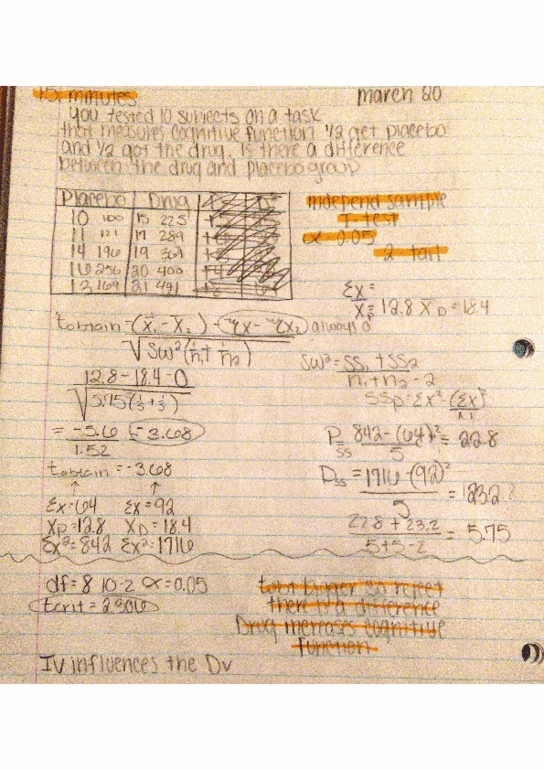 15 minutes
march 20
you tested 10 subjects on a task
that measures cognitive function 1/2 get placebo
and 1/2 got the drug. Is there a difference
between the drug and placebo group
Placebo Drug
10 100 15 225
11 121 17 289
14 196 19 361
16 256 20 400
13 169 21 441
Independ sample
T-test
α = 0.05
2-tail
Σx =
x̄ = 12.8 X̄D = 18.4
tobtain = (X̄1 - X̄2) - always 0
√Sw²(1/n1 + 1/n2)
Sw² = SS1 + SS2
n1 + n2 - 2
SSp = Σx² - (Σx)²
12.8 - 18.4 - 0
√5.75(1/5 + 1/5)
= -5.6 = -3.68
1.52
tobtain = -3.68
↑ ↑
Σx = 64 Σx = 92
X̄p = 12.8 X̄D = 18.4
Σx² = 842 Σx² = 1716
Pss = 842 - (64)² = 22.8
5
Dss = 1716 - (92)² = 23.2
5
22.8 + 23.2 = 5.75
5 + 5 - 2
df = 8 10-2 α = 0.05
tcrit = 2.306
tobt bigger so reject
there is a difference
Drug increases cognitive
function
IV influences the Dv